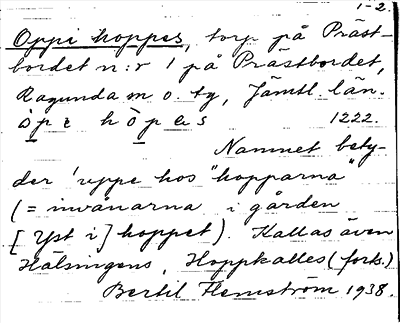 1-2.
Oppi hoppes, torp på Präst-
bordet n:r 1 på Prästbordet,
Ragunda m o. tg, Jämtl. län.
òpɪ hòpɛs 1222.
Namnet bety-
der 'uppe hos "hopparna"
(= invånarna i gården
[Yst i] hoppet). Kallas även
Hälsingens, Hoppkalles (forts.)
Bertil Flemström 1938.